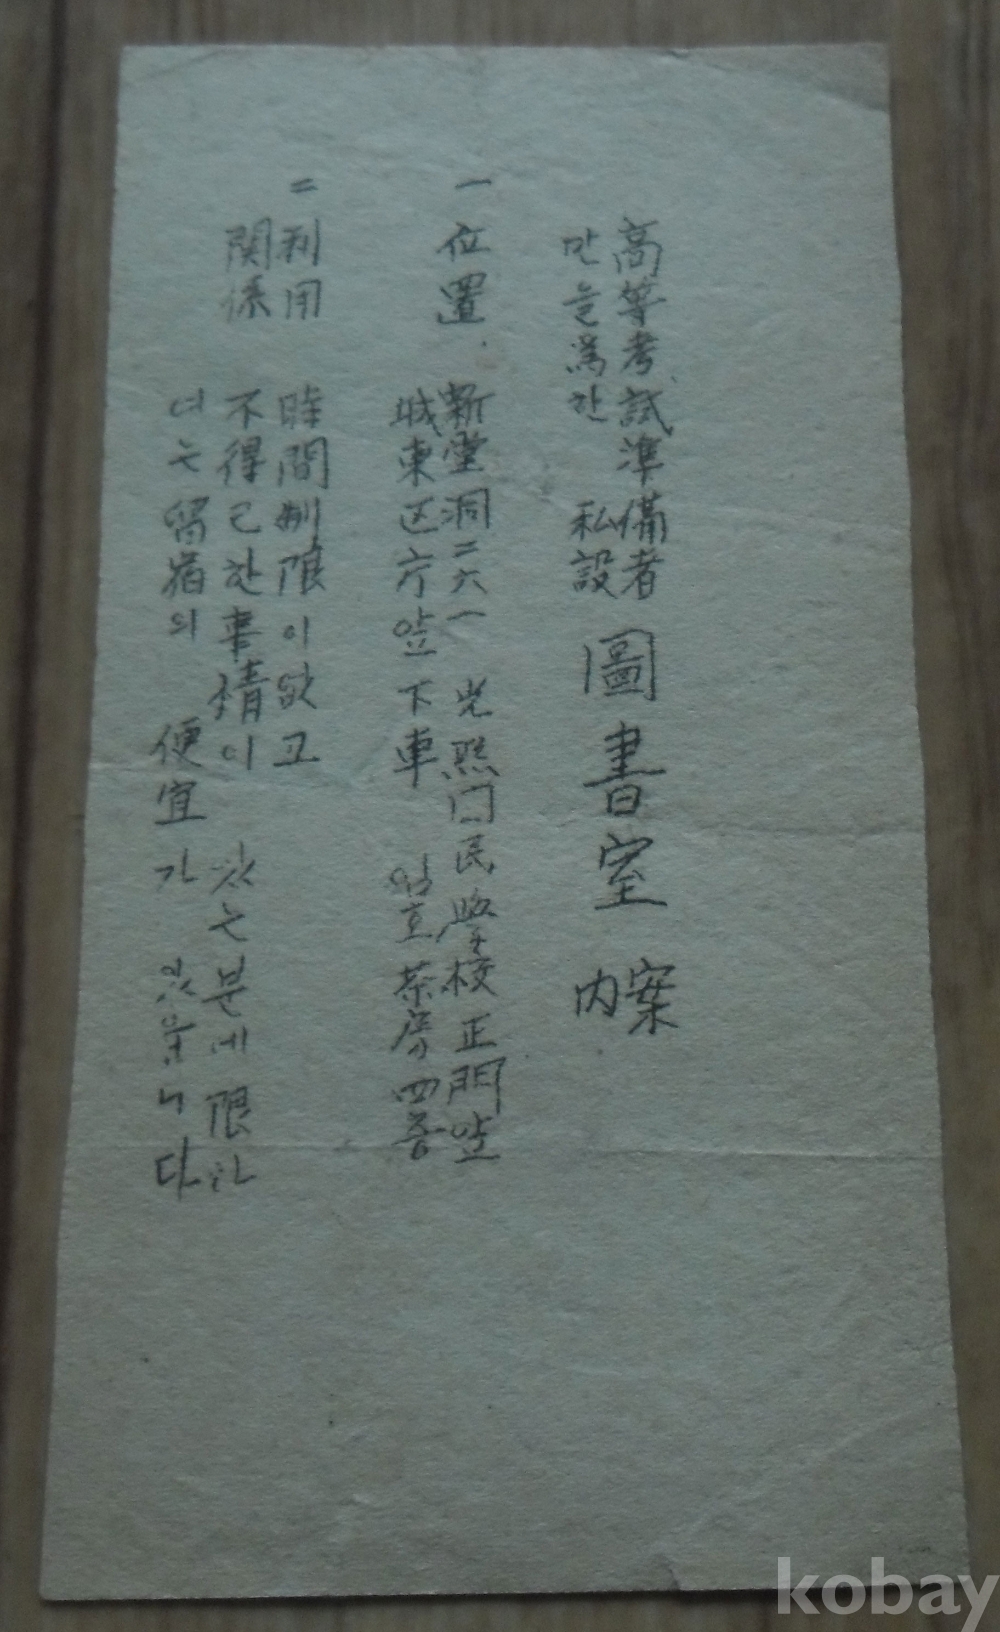 高等考試準備者
만을爲한 私設
圖書室
案
内
一 位置
新堂洞二六一 光熙国民學校正門앞
城東区庁앞 下車 일호茶房四층
二 利用
関係
時間制限이없고
不得已한事情이 있는분에限하
여는留宿의 便宜가 있읍니다
kobay